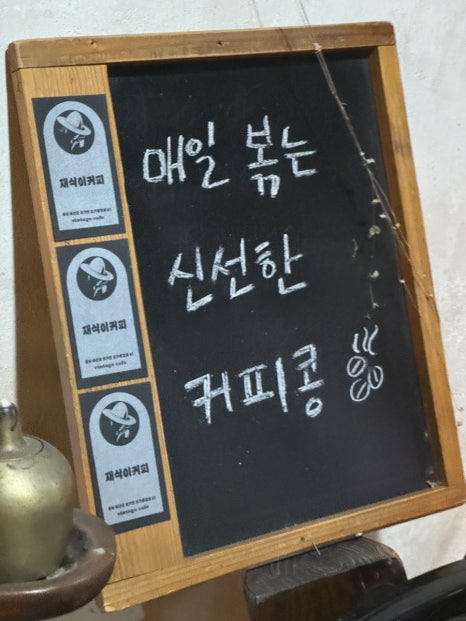 매일 볶는
신선한
커피콩
재식이커피
vintage cafe
재식이커피
vintage cafe
재식이커피
vintage cafe